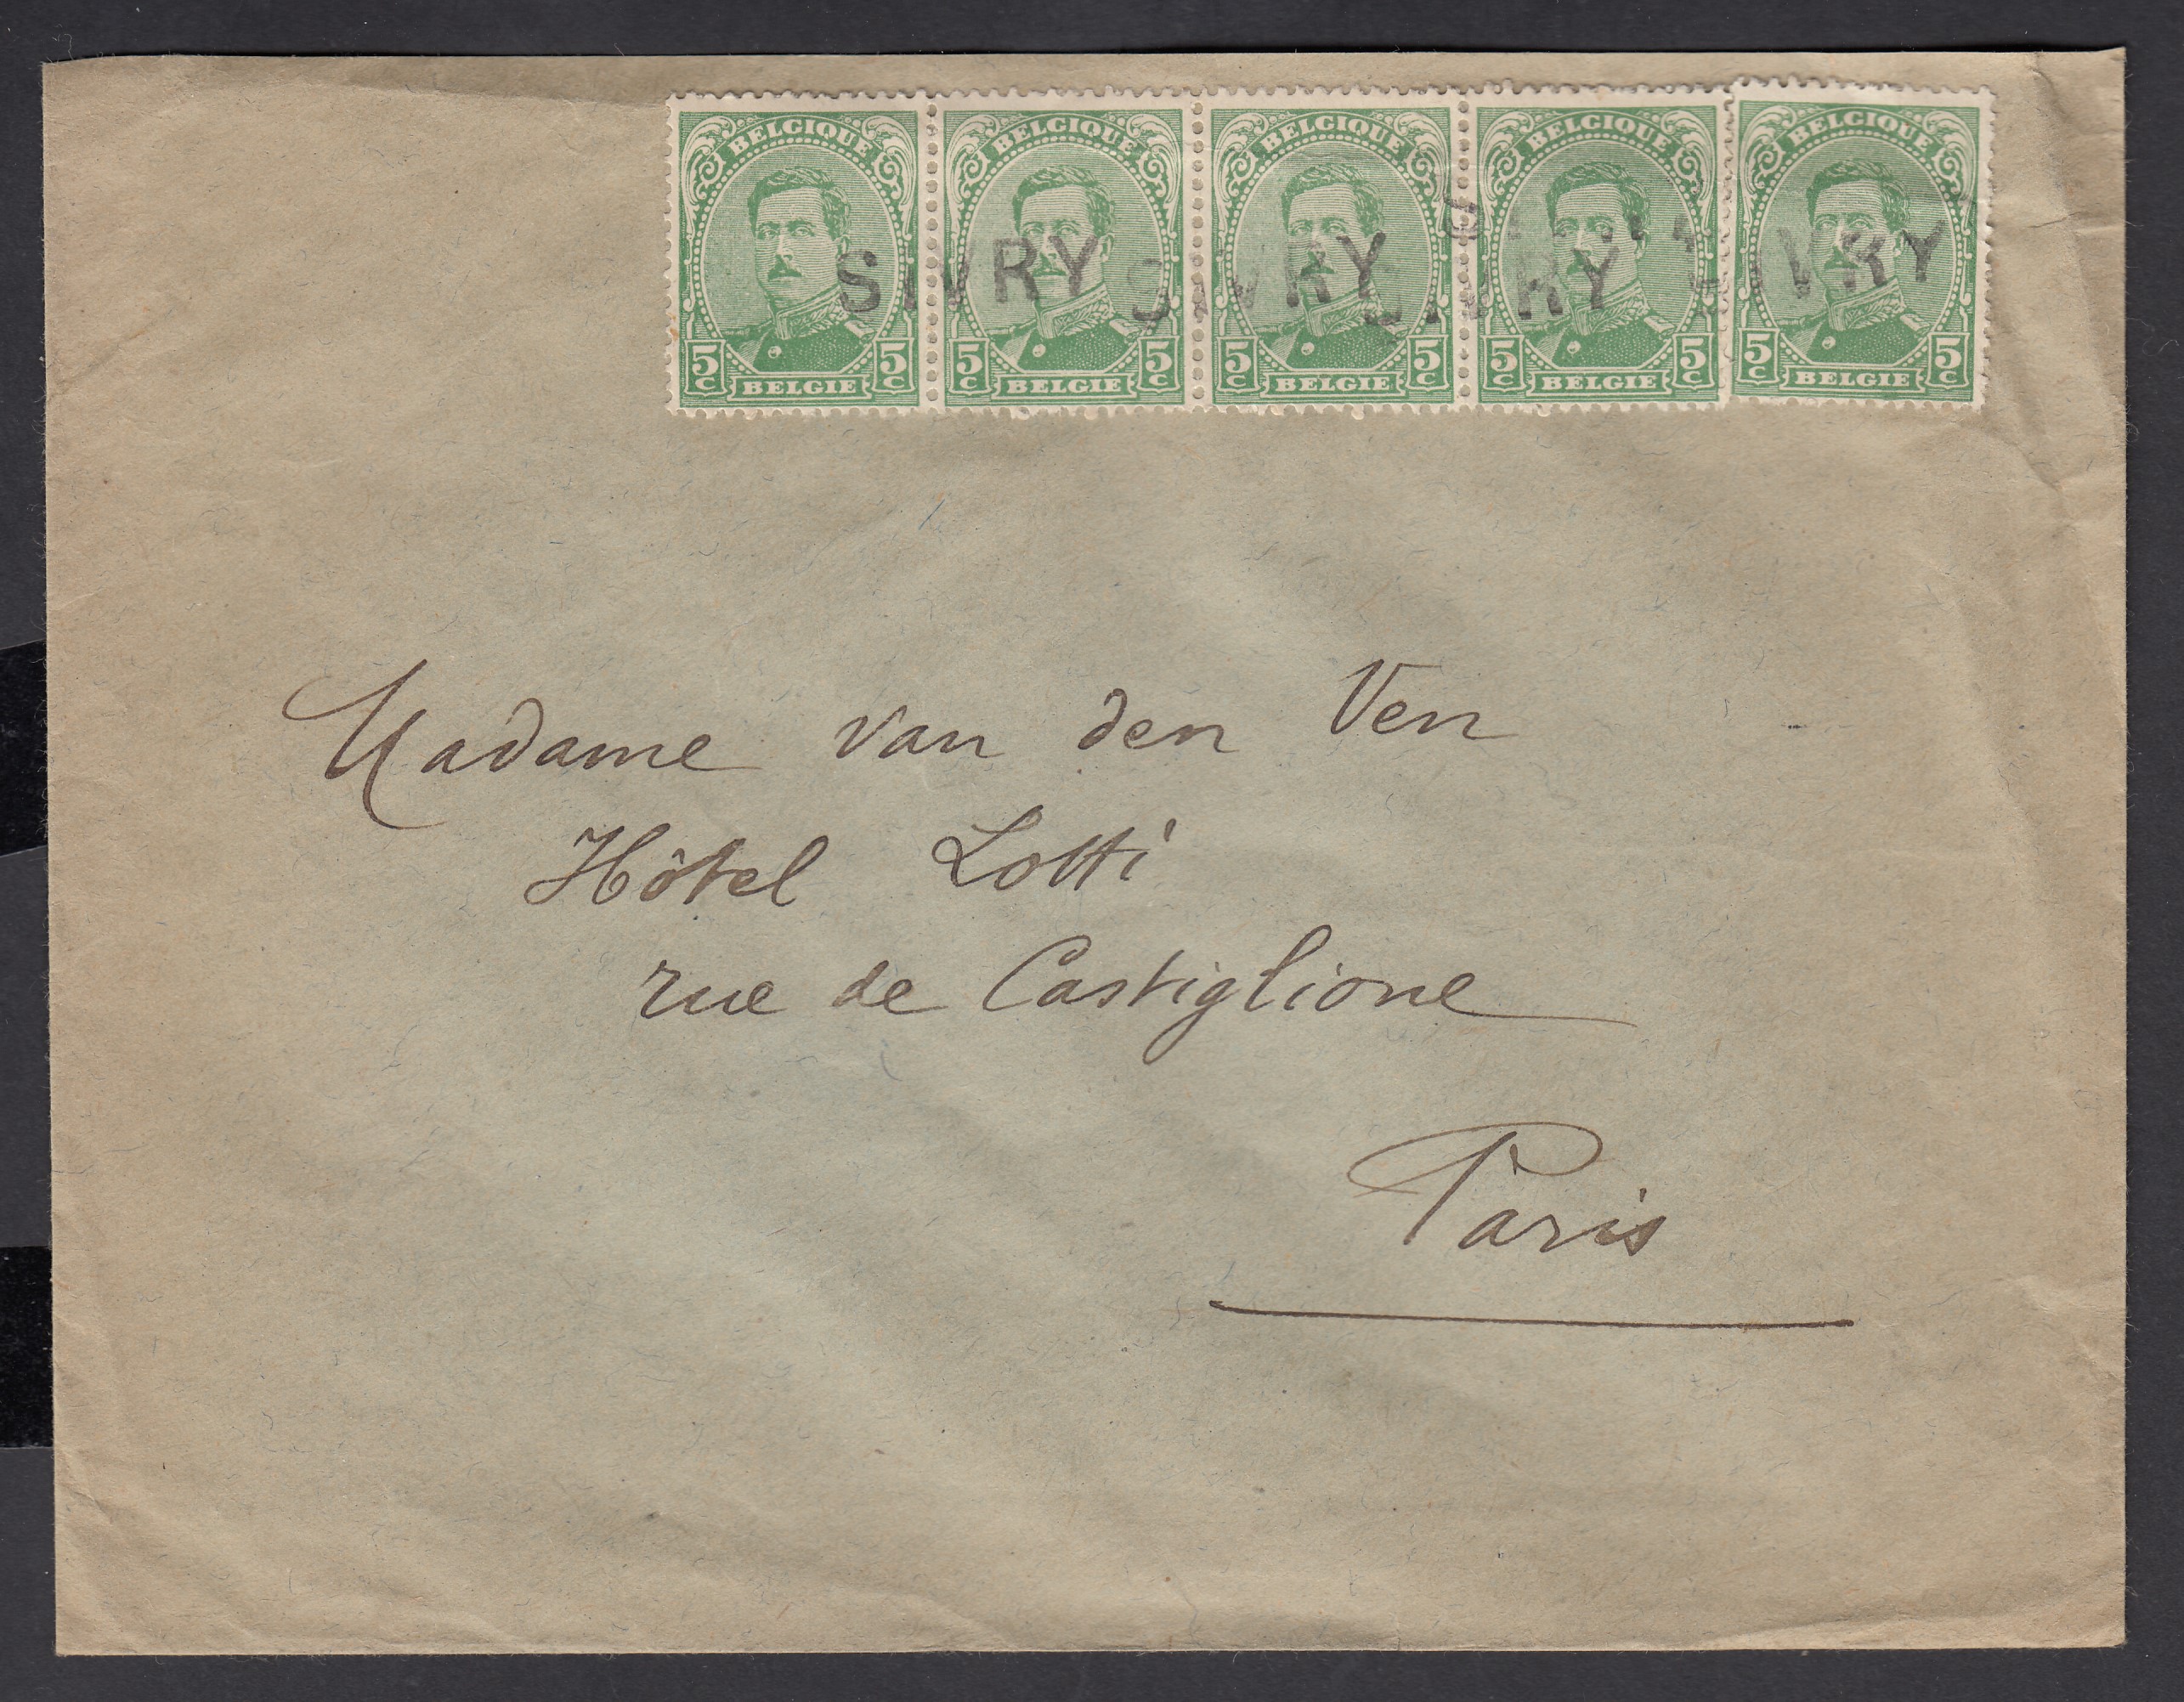 BELGIQUE BELGIQUE BELGIQUE BELGIQUE BELGIQUE
SIVRY SIVRY SIVRY SIVRY
5c 5c 5c 5c 5c 5c 5c 5c 5c 5c
BELGIE BELGIE BELGIE BELGIE BELGIE
Madame van den Ven
Hôtel Lotti
rue de Castiglione
Paris